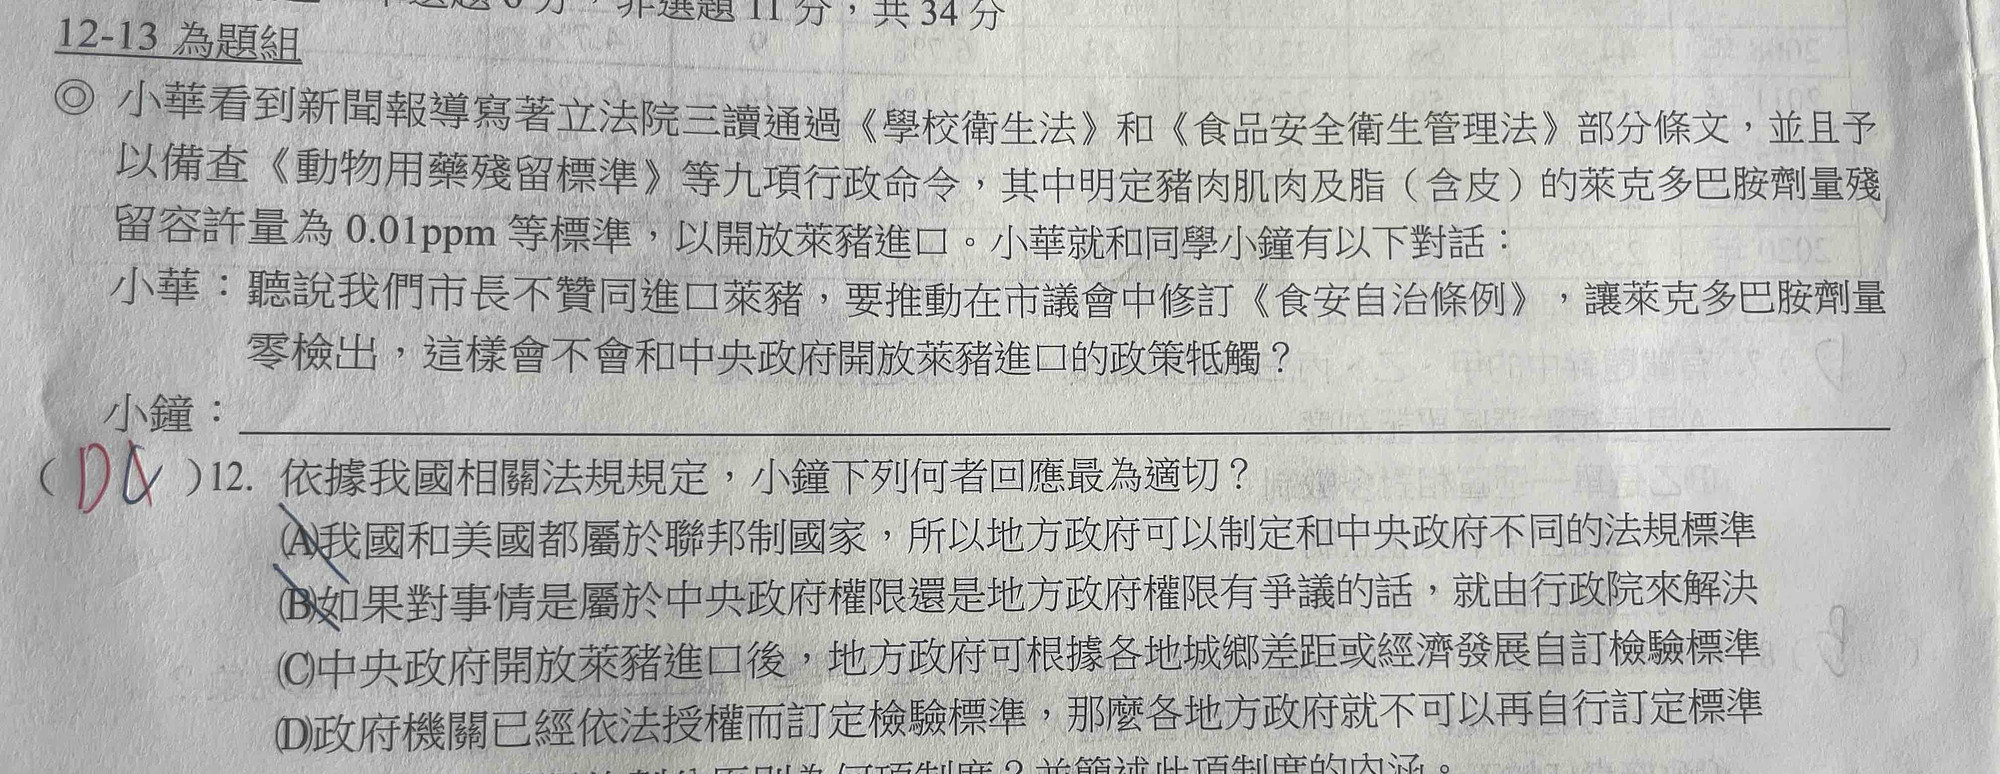 非選題 11 分，共 34 分
12-13 為題組
◎ 小華看到新聞報導寫著立法院三讀通過《學校衛生法》和《食品安全衛生管理法》部分條文，並且予
以備查《動物用藥殘留標準》等九項行政命令，其中明定豬肉肌肉及脂（含皮）的萊克多巴胺劑量殘
留容許量為 0.01ppm 等標準，以開放萊豬進口。小華就和同學小鐘有以下對話：
小華：聽說我們市長不贊同進口萊豬，要推動在市議會中修訂《食安自治條例》，讓萊克多巴胺劑量
零檢出，這樣會不會和中央政府開放萊豬進口的政策牴觸？
小鐘：
( D )12. 依據我國相關法規規定，小鐘下列何者回應最為適切？
(A)我國和美國都屬於聯邦制國家，所以地方政府可以制定和中央政府不同的法規標準
(B)如果對事情是屬於中央政府權限還是地方政府權限有爭議的話，就由行政院來解決
(C)中央政府開放萊豬進口後，地方政府可根據各地城鄉差距或經濟發展自訂檢驗標準
(D)政府機關已經依法授權而訂定檢驗標準，那麼各地方政府就不可以再自行訂定標準